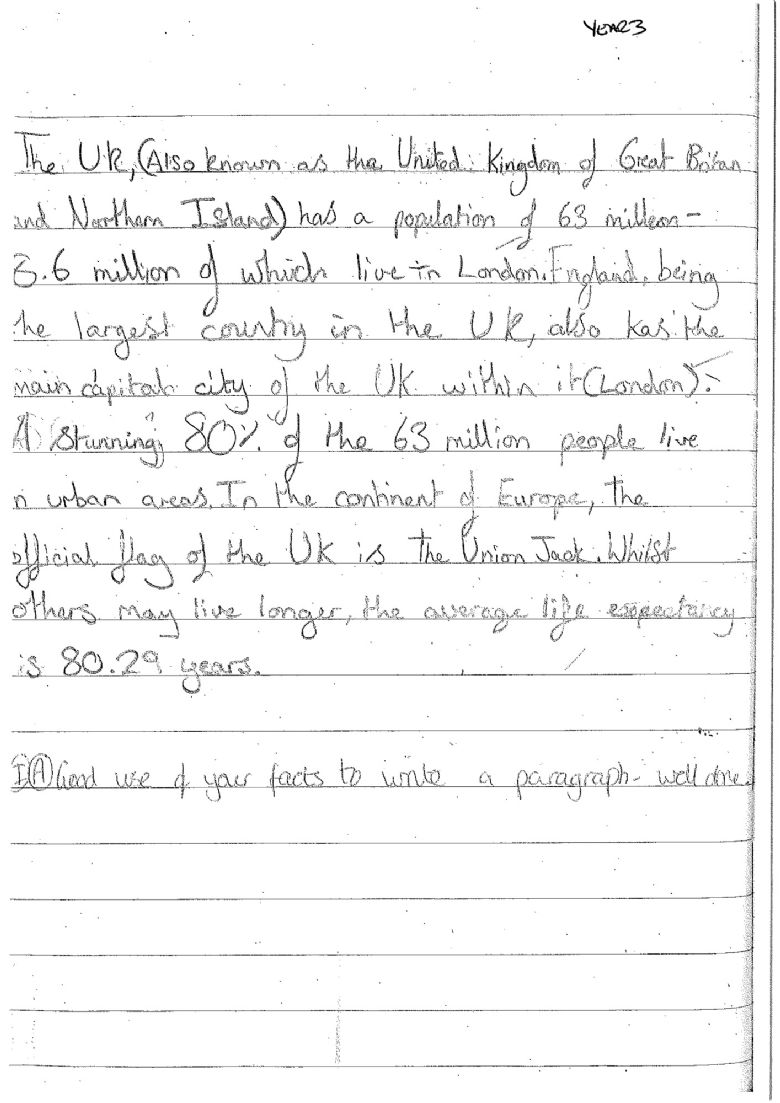 YEAR3
The UK, (Also known as the United Kingdom of Great Britan
and Northern Island) has a population of 63 million -
8.6 million of which live in London. England, being
the largest country in the UK, also has the
main capital city of the UK within it (London).
A stunning 80% of the 63 million people live
in urban areas. In the continent of Europe, the
official flag of the UK is the Union Jack. Whilst
others may live longer, the average life expectancy
is 80.29 years.
I Ⓐ Good use of your facts to write a paragraph - well done.